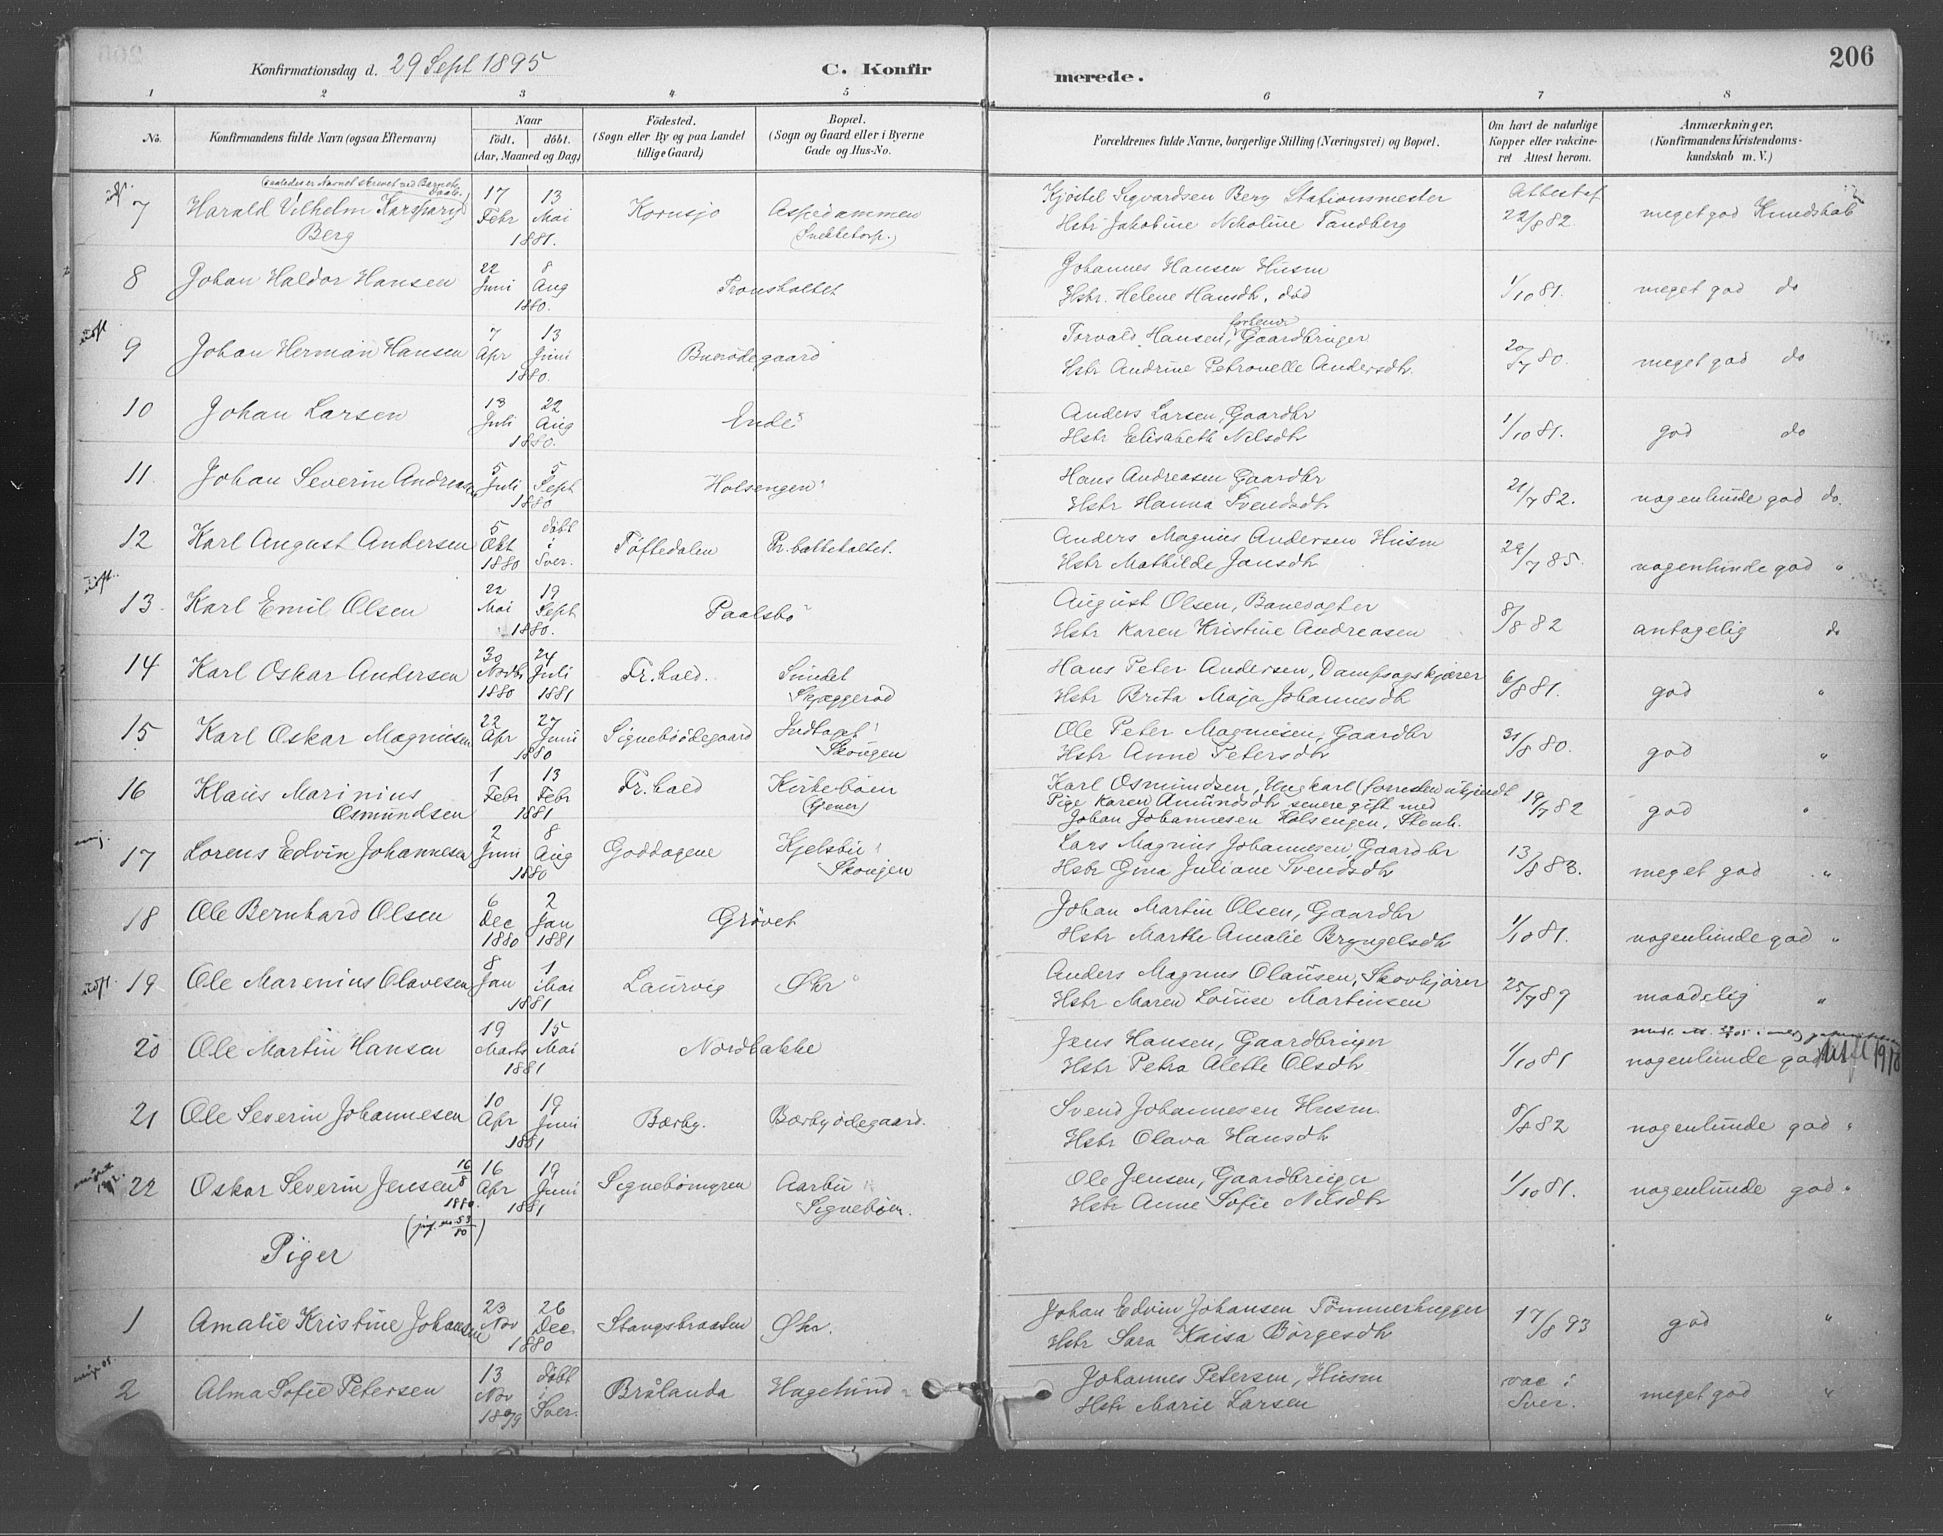 206
Konfirmationsdag d. 29 Sept 1895 C. Konfirmerede.
1 2 3 4 5 6 7 8
No. Konfirmandens fulde Navn (ogsaa Efternavn) Naar født. døbt. (Aar, Maaned og Dag) Fødested. (Sogn eller By og paa Landet tillige Gaard) Bopæl. (Sogn og Gaard eller i Byerne Gade og Hus-No. Forældrenes fulde Navne, borgerlige Stilling (Næringsvei) og Bopæl. Om havt de naturlige Kopper eller vaccineret Attest herom. Anmærkninger. (Konfirmandens Kristendomskundskab m. V.)
7 Harald Vilhelm Berg 17 Febr 13 Mai 1881. Kornsjo Aspedammen Kjøstel Sigvardsen Berg Stationsmester Attest af
Hstr Jakobine Nikoline Tandberg 22/8 82 meget god Kundskab
8 Johan Haldor Hansen 22 Juni 8 Aug 1880. Tronsholtet Johannes Hansen Husm
Hstr. Helene Hansdtr. død 1/10 81. meget god do
9 Johan Herman Hansen 7 Apr 13 Juni 1880. Buerødegaard Torvald Hansen, forhenv Gaardbruger
Hstr Andrine Petronelle Andersdtr. 20/7 80. meget god do
10 Johan Larsen 13 Juli 22 Aug 1880. Ende Anders Larsen, Gaardbr
Hstr Elisabeth Nilsdtr 1/10 81. god do
11 Johan Severin Andreasen 5 Juli 5 Sept 1880 Holsengen Hans Andreasen Gaardbr
Hstr Hanna Svendsdtr 21/7 82. nogenlunde god do.
12 Karl August Andersen 5 Okt 1880 døbt i Sver. Töftedalen Pr.bakkeholtet. Anders Magnus Andersen Husm
Hstr Mathilde Jansdtr 29/7 85. nogenlunde god "
13 Karl Emil Olsen 22 Mai 19 Sept 1880. Paalsbo August Olsen, Banevogter
Hstr Karen Kristine Andreasen 8/8 82 antagelig do
14 Karl Oskar Andersen 30 Novbr 1880 24 Juli 1881 Fr.hald. Sundet Skjæggerød Hans Peter Andersen, Dampsagskjører
Hstr Brita Maja Johannesdtr 6/8 81. god "
15 Karl Oskar Magnusen 22 Apr 27 Juni 1880 Signebøödegaard Indtaget Skougen Ole Peter Magnusen, Gaardbr
Hstr Anne Petersdtr 31/8 80. god "
16 Klaus Marinius Osmundsen 1 Febr 13 Febr 1881 Fr.hald Kirkebøen Karl Osmundsen, Ungkarl (forresten ubekjendt
Pige Karen Amundsdtr senere gift med
Johan Johannesen Holsengen, Stenh. 19/7 82 god "
17 Lorens Edvin Johannesen 2 Juni 8 Aug 1880 Goddagene Kjelsbu Skougen Lars Magnus Johannesen Gaardbr
Hstr Gina Juliane Svendsdtr 13/8 83. meget god "
18 Ole Bernhard Olsen 6 Dec 1880 2 Jan 1881 Grövet Johan Martin Olsen, Gaardbr
Hstr Marthe Amalie Bryngelsdtr 1/10 81. nogenlunde god "
19 Ole Marenius Olavesen 8 Jan 1 Mai 1881 Laurvig Øhr Anders Magnus Olausen, Skovkjører
Hstr Maren Louise Martinsen 25/7 89 maadelig "
20 Ole Martin Hansen 19 Marts 15 Mai 1881 Nordbakke Jens Hansen, Gaardbruger
Hstr Petra Alette Olsdtr 1/10 81 nogenlunde god
21 Ole Severin Johannesen 10 Apr 19 Juni 1881 Bærby. Bærbyødegaard. Svend Johannesen Husm.
Hstr Olava Hansdtr 8/8 82 nogenlunde god "
22 Oskar Severin Jensen 16/8 1880. 16 Apr 19 Juni 1881 Signebömyren Aarbu Signebøen. Ole Jensen, Gaardbruger
Hstr Anne Sofie Nilsdtr 1/10 81. nogenlunde god "
Piger
1 Amalie Kristine Johansen 23 Nov 26 Dec. 1880 Stangsbraaten Øhr. Johan Edvin Johansen Tömmerhugger
Hstr Sara Kaisa Börgesdtr 17/8 93 god "
2 Alma Sofie Petersen 13 Nov 1879 døbt i Sver. Brålanda Hagelund Johannes Petersen, Husm
Hstr Marie Larsen vac i Sver. meget god "